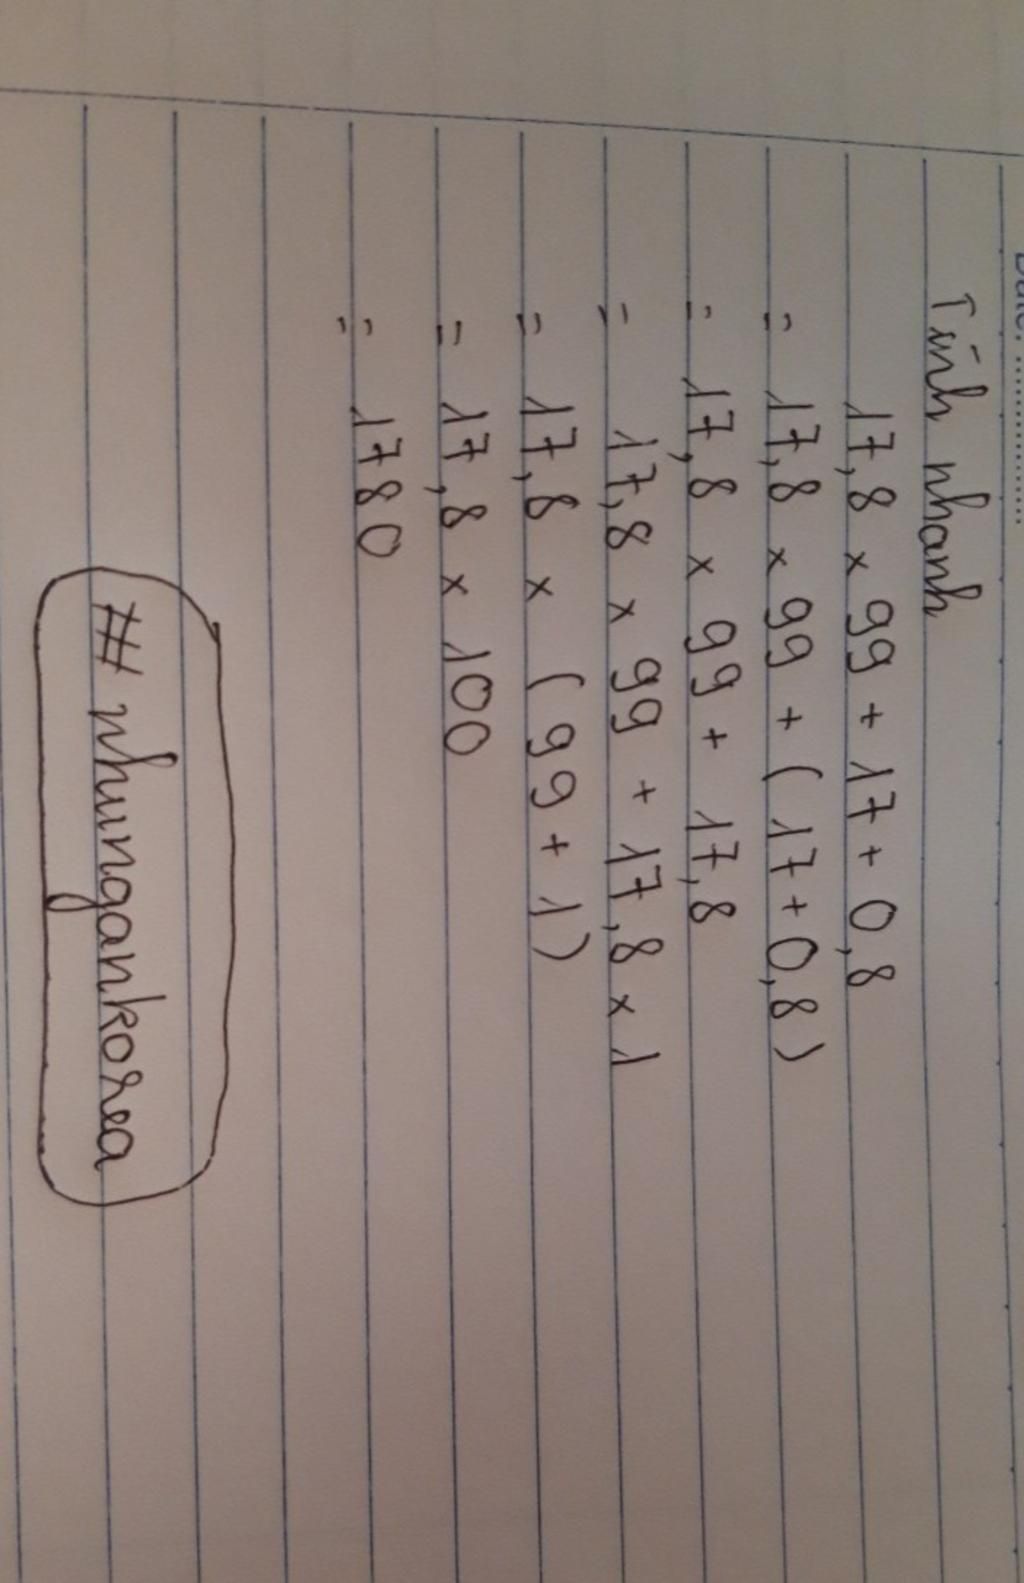 Date: ....................
Tính nhanh
17,8 x 99 + 17 + 0,8
= 17,8 x 99 + ( 17 + 0,8 )
= 17,8 x 99 + 17,8
= 17,8 x 99 + 17,8 x 1
= 17,8 x ( 99 + 1 )
= 17,8 x 100
= 1780
# nhungankorea